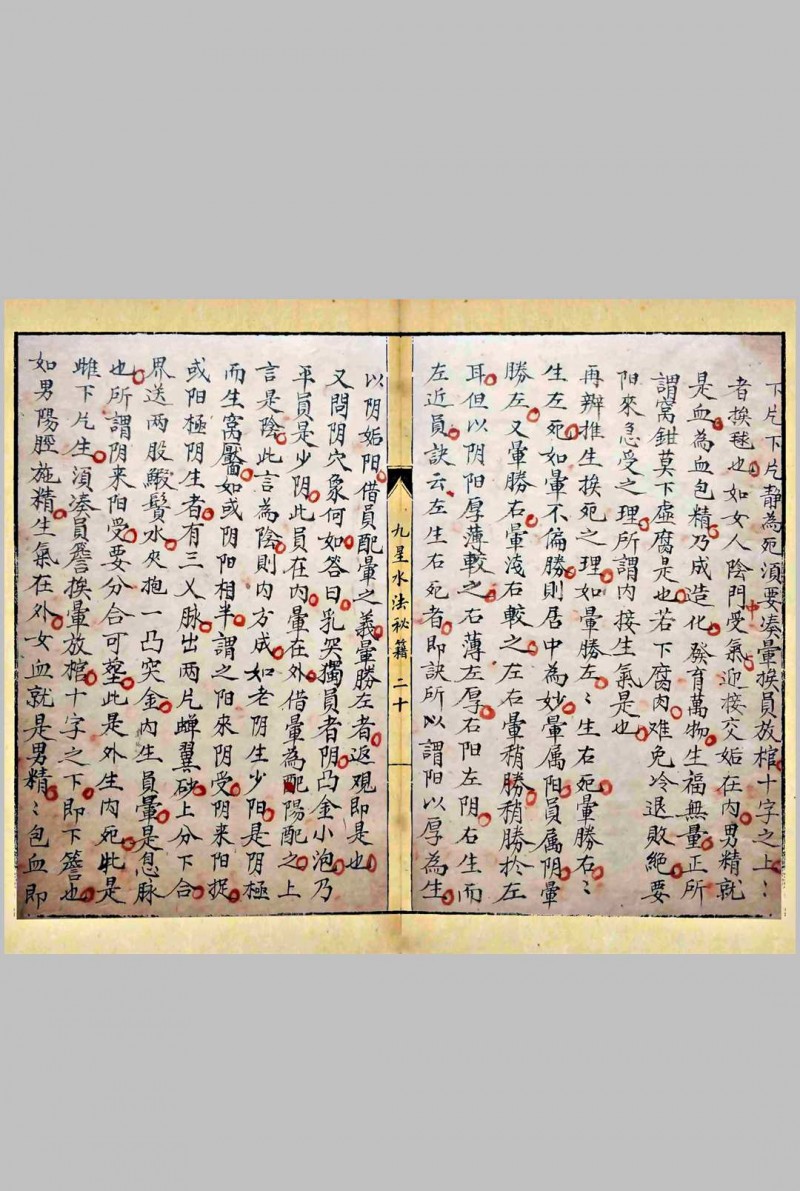 下片下片静為死須要凑暈挨員放棺十字之上〻
者挨毬也如女人陰門受氣迎接交姤在内男精就
是血為血包精乃成造化發育萬物生福無量正所
謂窝鉗莫下虚腐是也若下腐肉难免冷退敗絕要
阳來急受之理所謂内接生氣是也
再辨推生挨死之理如暈勝左〻生右死暈勝右〻
生左死如暈不偏勝則居中為妙暈属阳員属阴暈
勝左又暈勝右暈淺右較之左右暈稍勝稍勝於左
耳但以阴阳厚薄較之右薄左厚右阳左阴右生而
左近員訣云左生右死者即訣所以謂阳以厚為生
九星水法秘籍 二十
以阴姤阳借員配暈之義暈勝左者返观即是也
又問阴穴象何如答曰乳突獨員者阴凸金小泡乃
平員是少阴此員在内暈在外借暈為配陽配之上
言是陰此言為陰則内方成如老阴生少阳是阴極
而生窝靨如或阴阳相半謂之阳來阴受阴来阳捉
或阳極阴生者有三乂脉出两片蝉翼砂上分下合
界送两股鰕鬚水夾抱一凸突金内生員暈是息脉
也所謂阴来阳受要分合可塟此是外生内死此是
雌下片生須凑員簷挨暈放棺十字之下即下簷也
如男陽脛施精生氣在外女血就是男精〻包血即